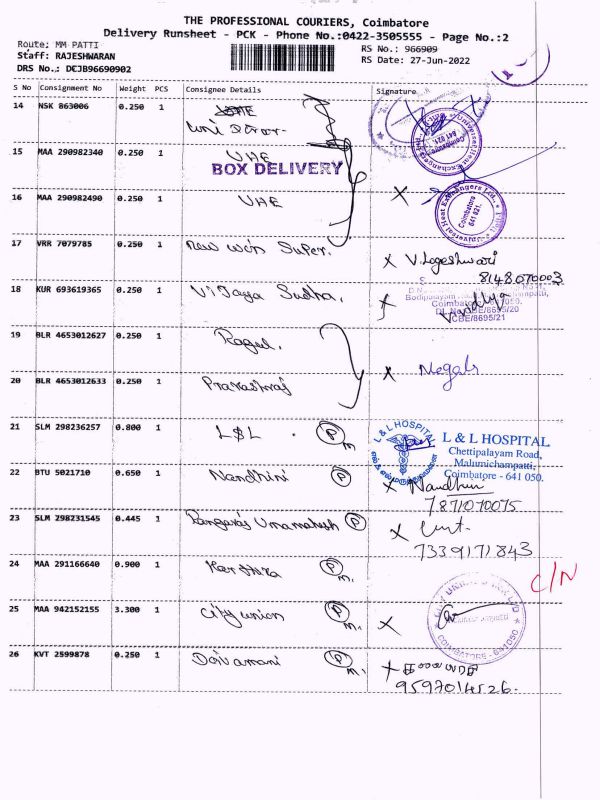 THE PROFESSIONAL COURIERS, Coimbatore
Delivery Runsheet - PCK - Phone No.:0422-3505555 - Page No.:2
Route: MM PATTI
Staff: RAJESHWARAN
DRS No.: DCJB96690902
RS No.: 966909
RS Date: 27-Jun-2022
S No Consignment No Weight PCS Consignee Details Signature
14 NSK 863006 0.250 1
15 MAA 290982340 0.250 1 UHE
BOX DELIVERY
16 MAA 290982490 0.250 1 UHE
Universal Heat Exchangers
Coimbatore
641 021.
17 VRR 7079785 0.250 1 New won Super. X V. Logeshwari
8148070003
18 KUR 693619365 0.250 1 Vijaya Sudha.
Coimbatore
CBE/8695/21
19 BLR 4653012627 0.250 1 Ragul.
20 BLR 4653012633 0.250 1 X
21 SLM 298236257 0.800 1 L&L . P
L & L HOSPITAL
L & L HOSPITAL
Chettipalayam Road,
Malumichampatti,
Coimbatore - 641 050.
22 BTU 5021710 0.650 1 Nandhini P X Nandhini
7871070075
23 SLM 298231545 0.445 1 Umamahesh P X
7339171843
24 MAA 291166640 0.900 1 P m.
C/N
25 MAA 942152155 3.300 1 City union P m. X
COIMBATORE - 641050
26 KVT 2599878 0.250 1 Doivamani P m. X
9597014526.